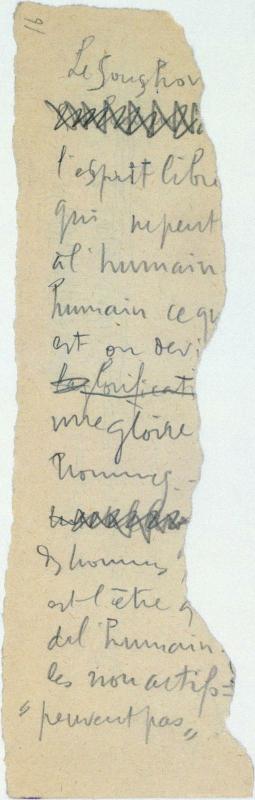 91
Le Soushom
l'esprit libre
qui ne peut
à l'humain
humain ce qu
est on devi
glorificati
une gloire
hommes.
des hommes
est l'être
de l'humain.
les non actifs =
"peuvent pas"